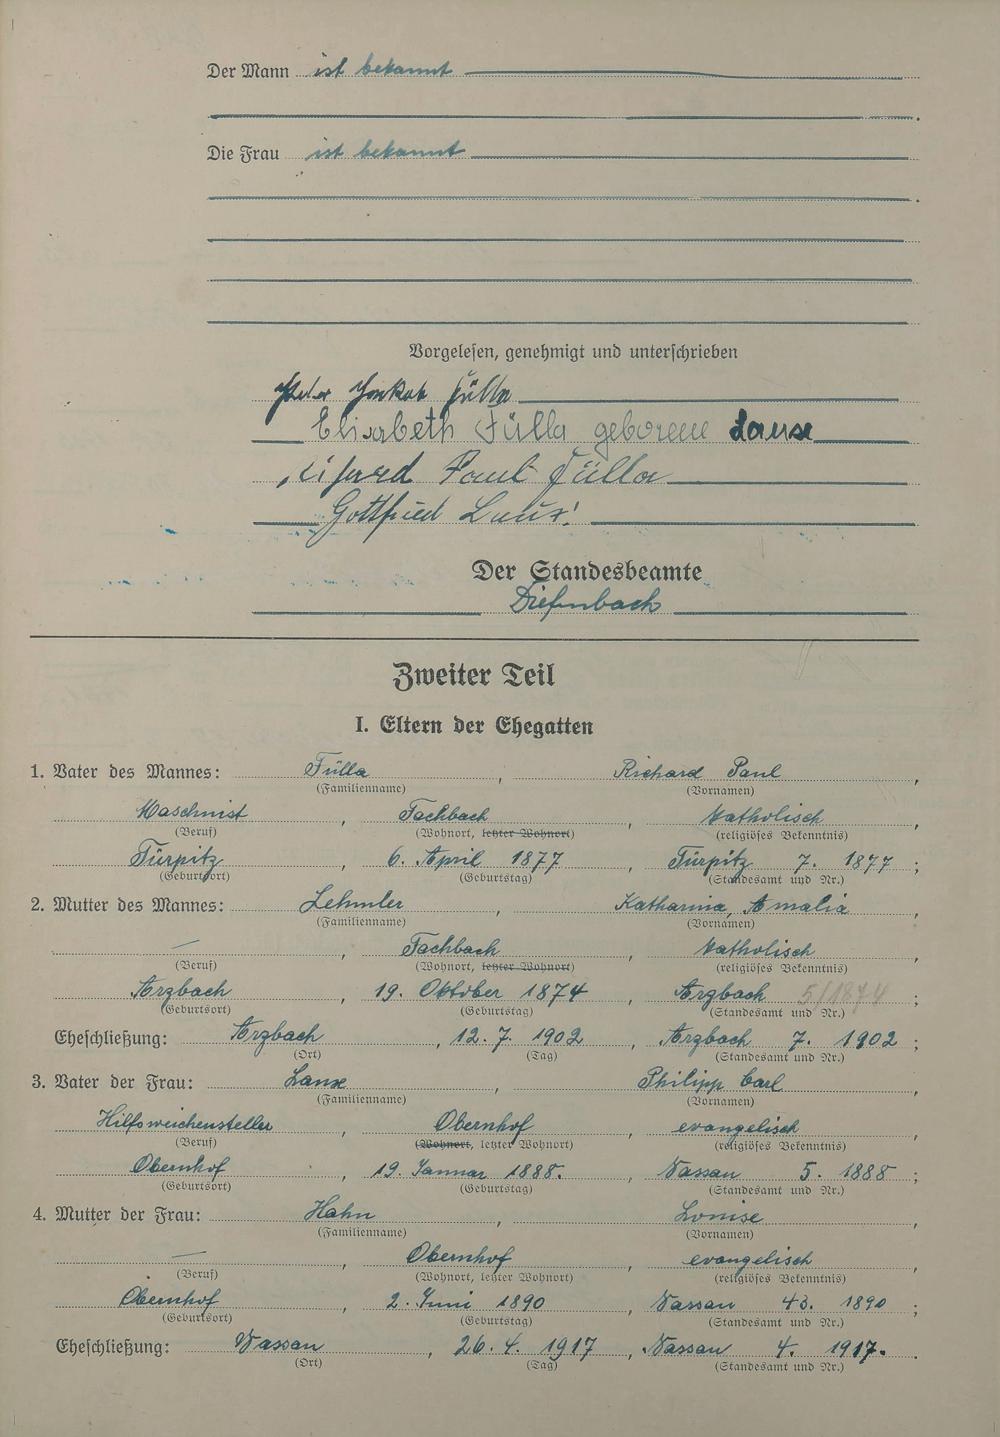 Der Mann ist bekannt
Die Frau ist bekannt
Vorgelesen, genehmigt und unterschrieben
Peter Jakob Fülla
Elisabeth Fülla geborene Lause
Paul Fülla
Gottfried
Der Standesbeamte
Diefenbach
Zweiter Teil
I. Eltern der Ehegatten
1. Vater des Mannes: Fülla, Richard Paul,
(Familienname) (Vornamen)
Maschnist, Fachbach, katholisch
(Beruf) (Wohnort, letzter Wohnort) (religiöses Bekenntnis)
Türpitz, 6. April 1877, Türpitz 7. 1877;
(Geburtsort) (Geburtstag) (Standesamt und Nr.)
2. Mutter des Mannes: Lehmler, Katharina, Amalia,
(Familienname) (Vornamen)
—, Fachbach, katholisch
(Beruf) (Wohnort, letzter Wohnort) (religiöses Bekenntnis)
Arzbach, 19. Oktober 1874, Arzbach 5/1874;
(Geburtsort) (Geburtstag) (Standesamt und Nr.)
Eheschließung: Arzbach, 12. 7. 1902, Arzbach 7. 1902;
(Ort) (Tag) (Standesamt und Nr.)
3. Vater der Frau: Lause, Philipp Carl,
(Familienname) (Vornamen)
Hilfsweichensteller, Obernhof, evangelisch,
(Beruf) (Wohnort, letzter Wohnort) (religiöses Bekenntnis)
Obernhof, 19. Januar 1888., Nassau 5. 1888;
(Geburtsort) (Geburtstag) (Standesamt und Nr.)
4. Mutter der Frau: Hahn, Louise,
(Familienname) (Vornamen)
—, Obernhof, evangelisch,
(Beruf) (Wohnort, letzter Wohnort) (religiöses Bekenntnis)
Obernhof, 2. Juni 1890, Nassau 43. 1890;
(Geburtsort) (Geburtstag) (Standesamt und Nr.)
Eheschließung: Nassau, 26. 4. 1917, Nassau 4. 1917.
(Ort) (Tag) (Standesamt und Nr.)